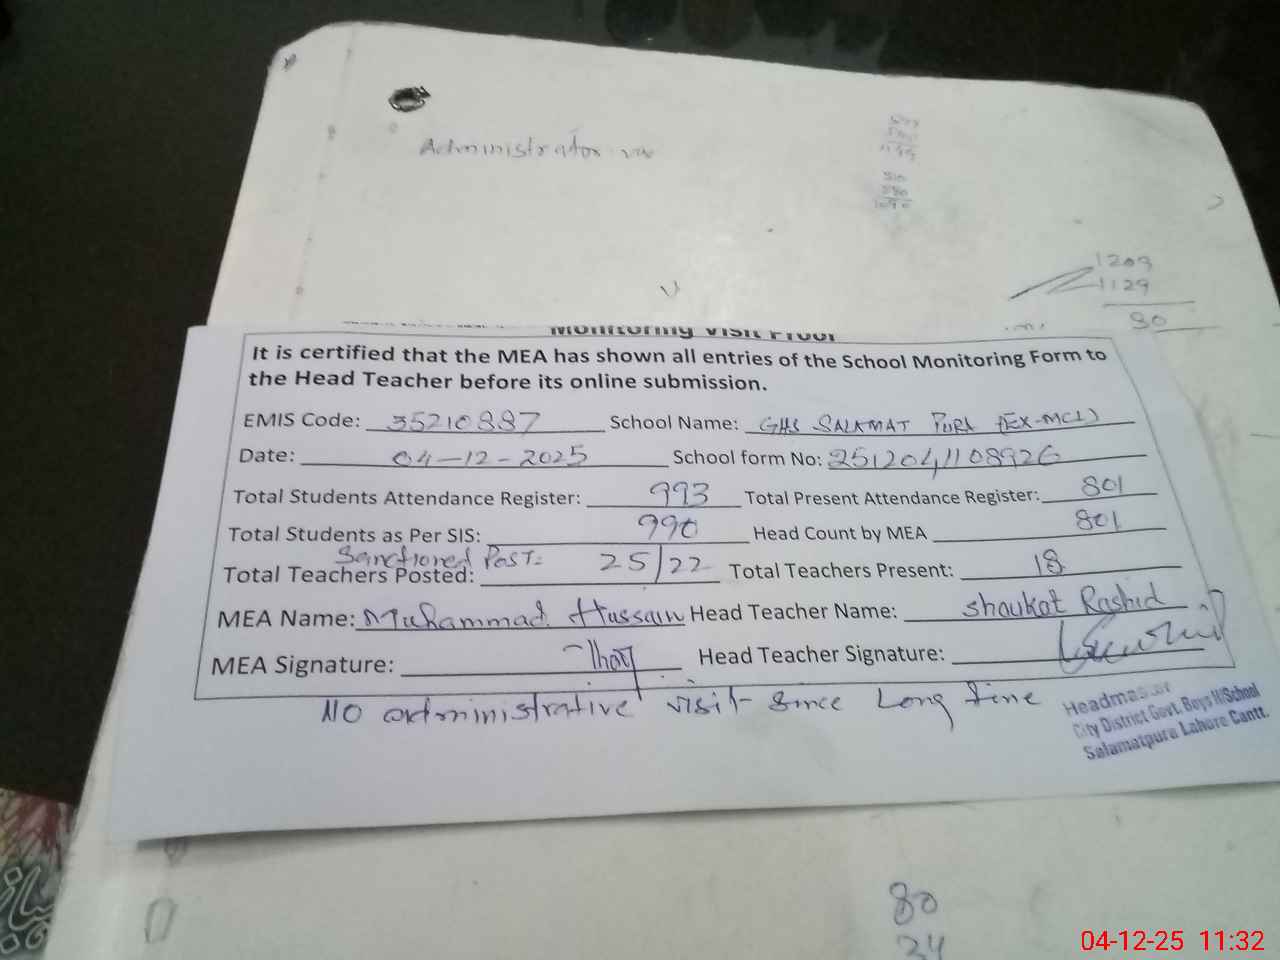 Administrator
1209
1129
80
Monitoring Visit Proof
It is certified that the MEA has shown all entries of the School Monitoring Form to
the Head Teacher before its online submission.
EMIS Code: 35210887 School Name: GHS SALAMAT PURA (EX-MCL)
Date: 04-12-2025 School form No: 2512041108926
Total Students Attendance Register: 993 Total Present Attendance Register: 801
Total Students as Per SIS: 990 Head Count by MEA 801
Sanctioned Post=
Total Teachers Posted: 25/22 Total Teachers Present: 18
MEA Name: Muhammad Hussain Head Teacher Name: Shaukat Rashid
MEA Signature: Head Teacher Signature:
NO administrative visit - Since Long time
Headmaster
City District Govt. Boys H/School
Salamatpura Lahore Cantt.
80
34
04-12-25 11:32